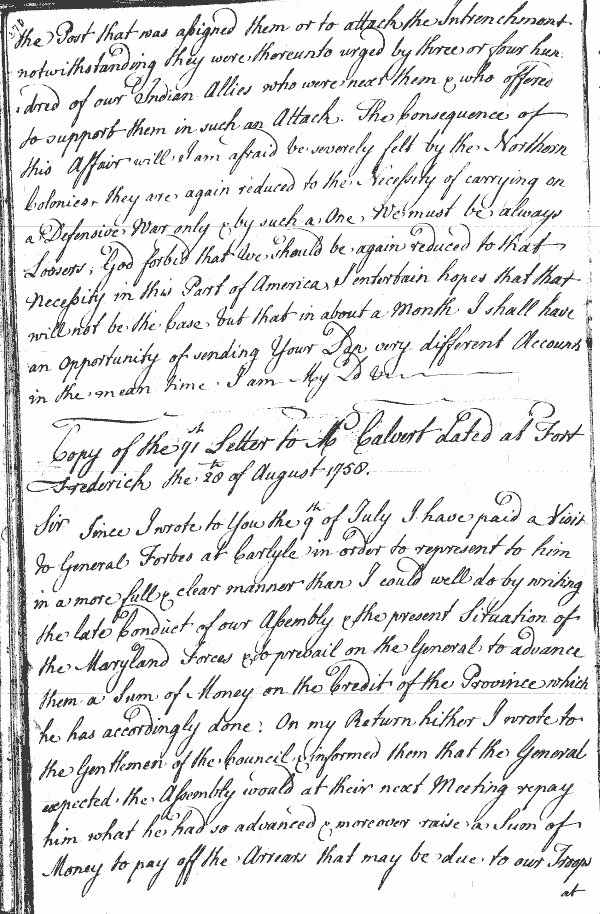 the Post that was assigned them or to attack the Intrenchment
notwithstanding they were thereunto urged by three or four hun
dred of our Indian Allies who were next them & who offered
to support them in such an Attack. The Consequence of
this Affair will I am afraid be severely felt by the Northern
Colonies, they are again reduced to the Necessity of carrying on
a Defensive War only & by such a One We must be always
Loosers, God forbid that We should be again reduced to that
Necessity in this Part of America, I entertain hopes that that
will not be the Case but that in about a Month I shall have
an Opportunity of sending Your Ldp very different Accounts
in the mean time I am My Ld &c
Copy of the 71st Letter to Mr Calvert dated at Fort
Frederick the 28th of August 1758.
Sir Since I wrote to You the 9th of July I have paid a Visit
to General Forbes at Carlyle in order to represent to him
in a more full & clear manner than I could well do by writing
the late Conduct of our Assembly & the present Situation of
the Maryland Forces & to prevail on the General to advance
them a Sum of Money on the Credit of the Province which
he has accordingly done: On my Return hither I wrote to
the Gentlemen of the Council & informed them that the General
expected the Assembly would at their next Meeting repay
him what he had so advanced & moreover raise a Sum of
Money to pay off the Arrears that may be due to our Troops
at